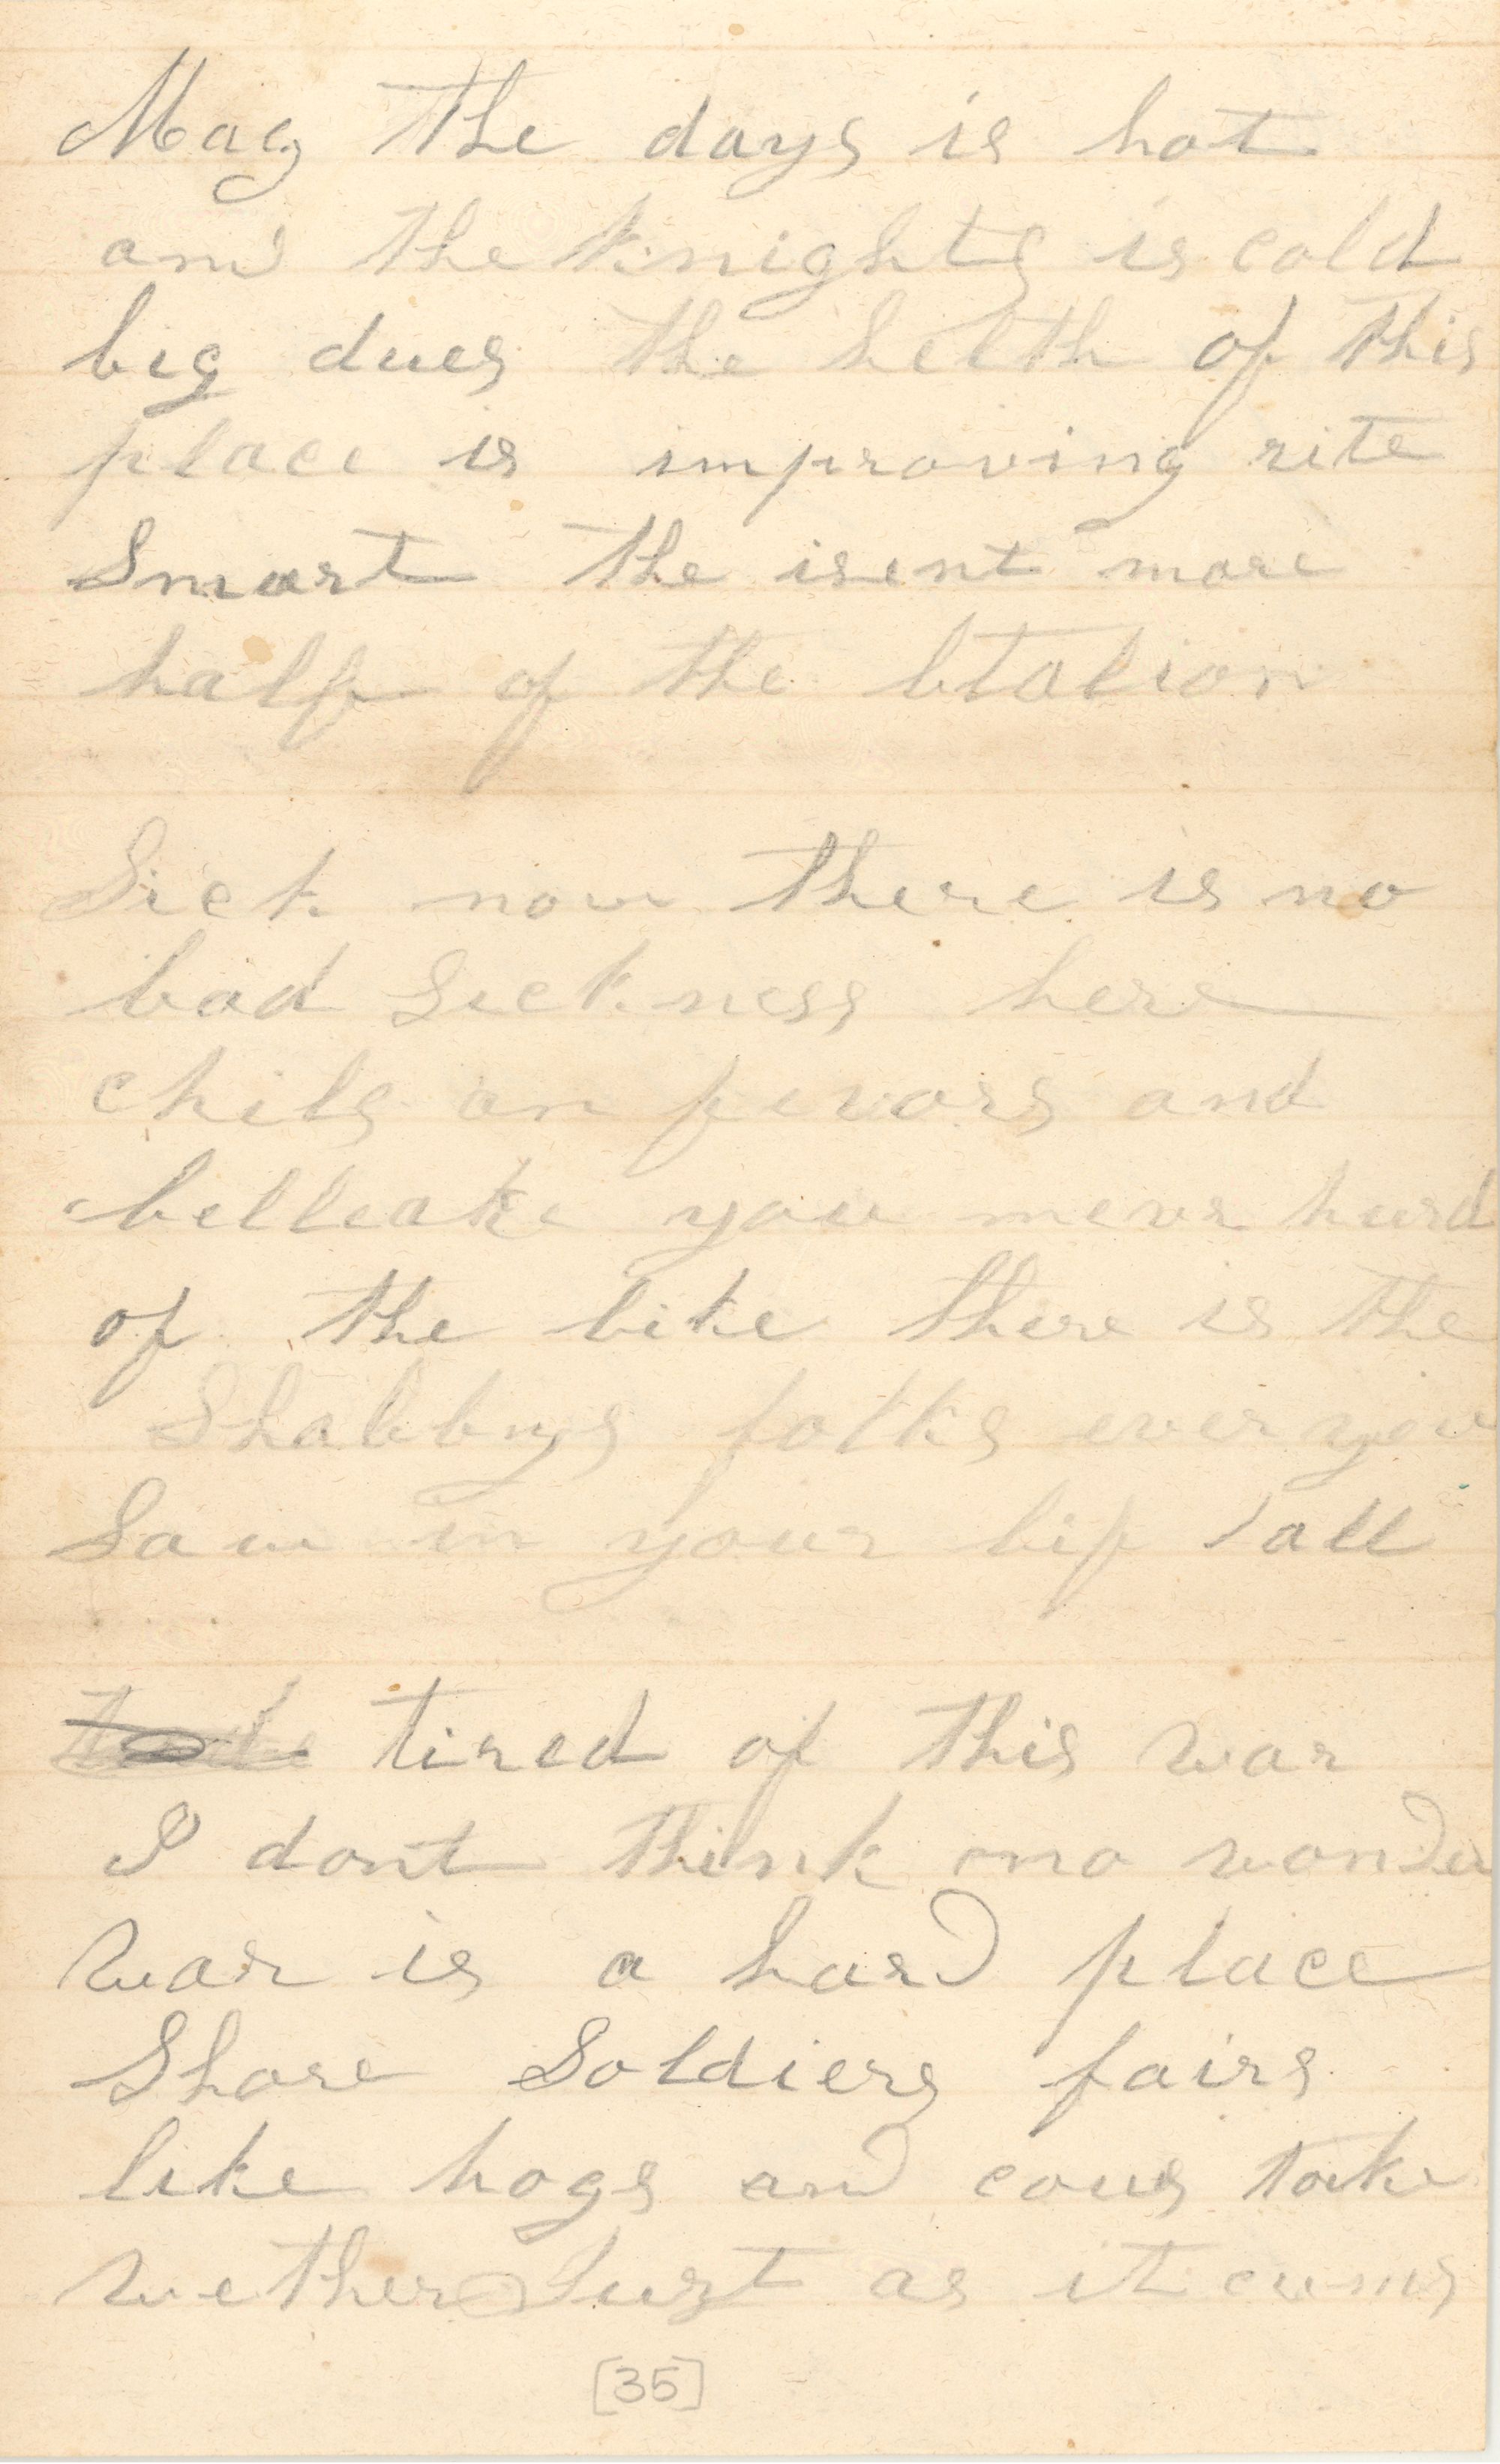 Mag the days is hot
and the knights is cold
big dues the helth of this
place is improving rite
Smart the isent more
half of the btalion
Sick now there is no
bad Sickness here
chils an fevors and
belleake you never hurd
of the like there is the
Shabbys folks ever you
Saw in your lif all
tired of this war
I dont think no wonder
War is a hard place
Shore Soldiers fairs
like hogs and cous take
wether Just as it cums
[35]